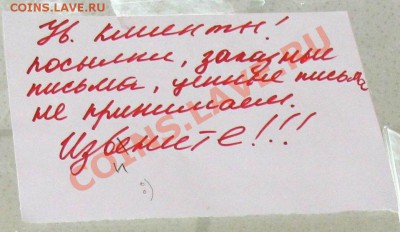 COINS.SU / COINS.RU
Ув. клиенты!
посылки, заказные
письма, ценные письма
не принимаем.
Извените!!!
и
:)
COINS.SU / COINS.RU